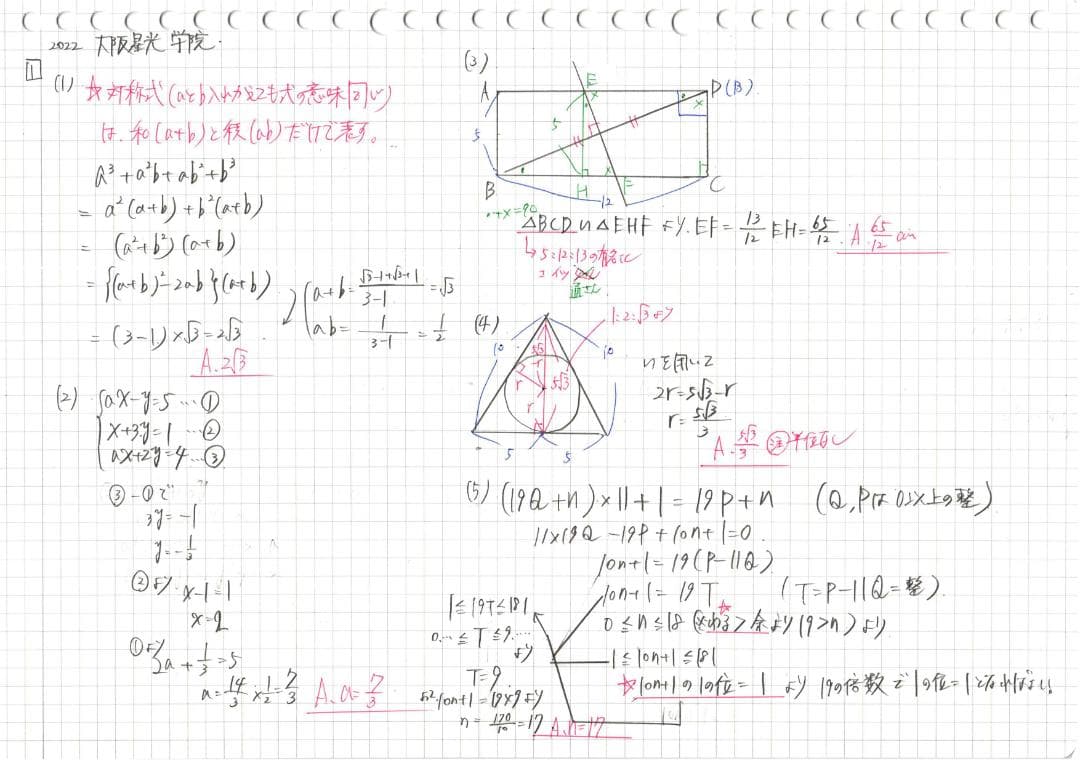 2022 大阪星光学院.
1
(1) ☆対称式(aとb入れかえても式の意味同じ)
は、和(a+b)と積(ab)だけで表す。
a³+a²b+ab²+b³
= a²(a+b)+b²(a+b)
= (a²+b²)(a+b)
= {(a+b)²-2ab}(a+b)
a+b= (√3-1+√3+1)/(3-1) =√3
ab= 1/(3-1) = 1/2
= (3-1)×√3=2√3
A.2√3
(2) ax-y=5 … ①
x+3y=1 … ②
ax+2y=4 … ③
③-①で
3y=-1
y=-1/3
②より. x-1=1
x=2
①より
2a+1/3=5
a=14/3×1/2=7/3
A. a=7/3
(3)
A E D(B)
5 5
B H F C
12
・+×=90
△BCD∽△EHFより. EF=13/12 EH=65/12. A. 65/12 cm
→5:12:13の有名
(4)
1:2:√3より
10 10
5√3
r r r 5√3
5 5
∽を用いて
2r=5√3-r
r=5√3/3
A. 5√3/3 注 単位なし
(5) (19Q+n)×11+1=19P+n (Q,Pは0以上の整)
11×19Q-19P+10n+1=0.
10n+1=19(P-11Q)
10n+1=19T (T=P-11Q=整).
0≦n≦18 (☆わる>余より(19>n)より
1≦10n+1≦181
1≦19T≦181
0.…≦T≦9.…
より
☆10n+1の1の位=1 より 19の倍数で1の位=1となればよい
T=9
10n+1=19×9より
n=170/10=17
A. n=17